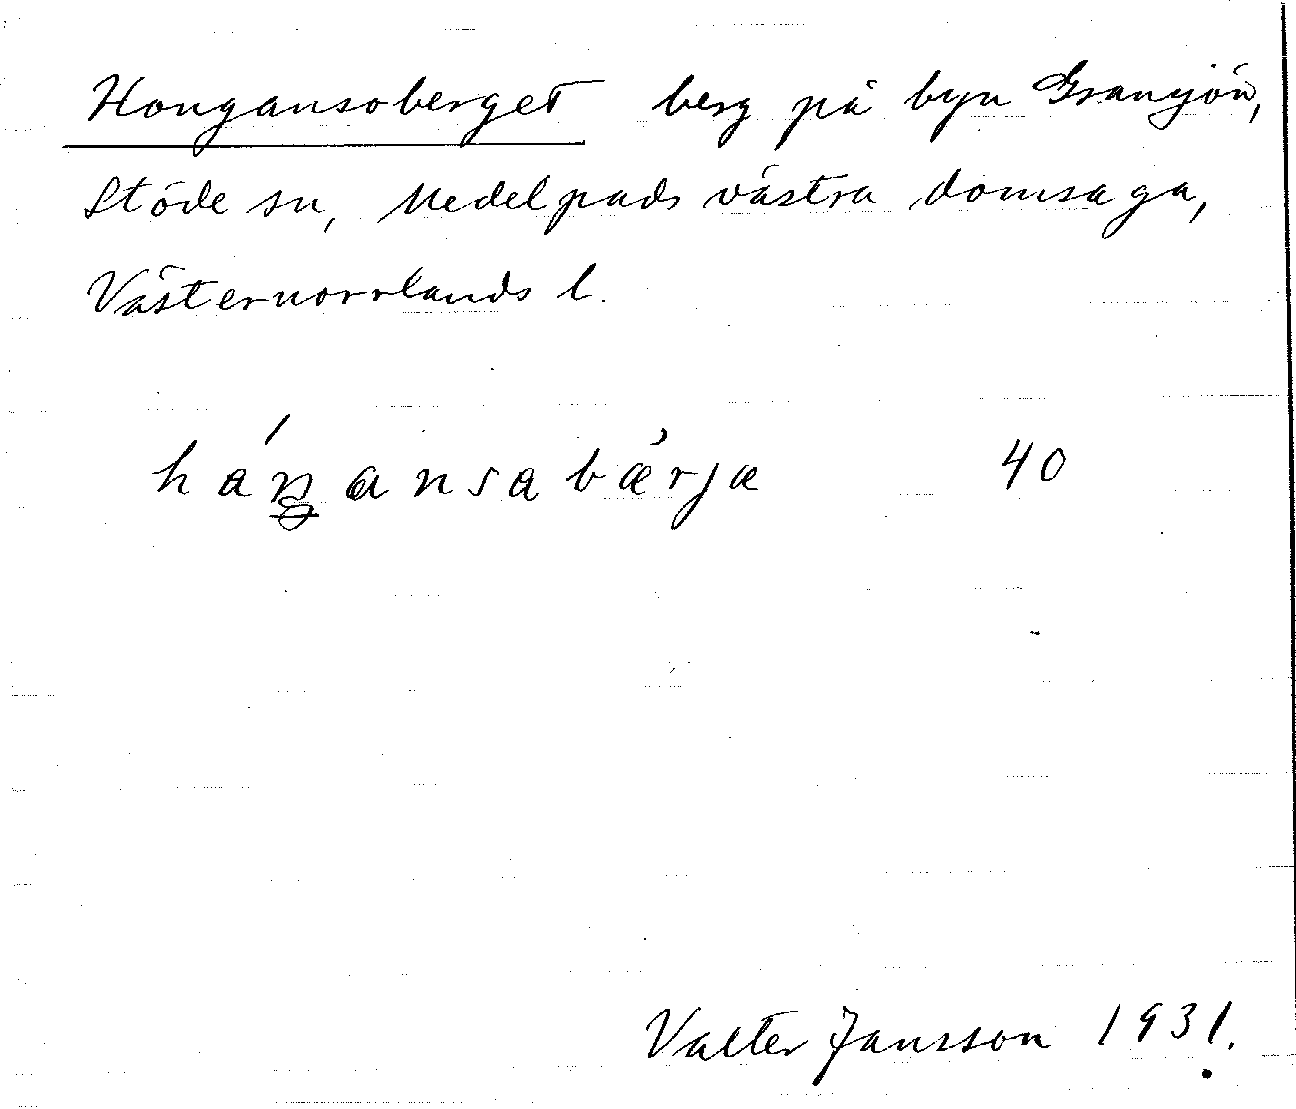 Hongansoberget berg på byn Gransjön,
Stöde sn, Medelpads västra domsaga,
Västernorrlands l.
háŋansabärja 40
Valter Jansson 1931.